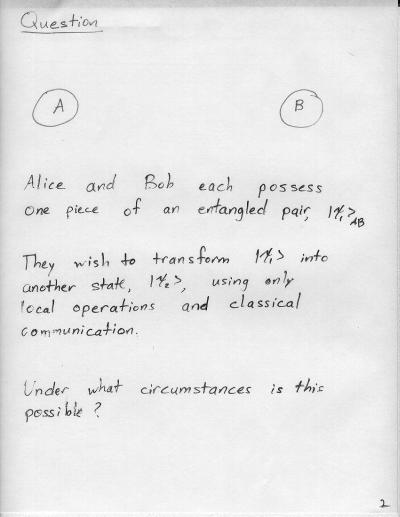 Question
A B
Alice and Bob each possess
one piece of an entangled pair, |ψ₁>AB
They wish to transform |ψ₁> into
another state, |ψ₂>, using only
local operations and classical
communication.
Under what circumstances is this
possible?
2